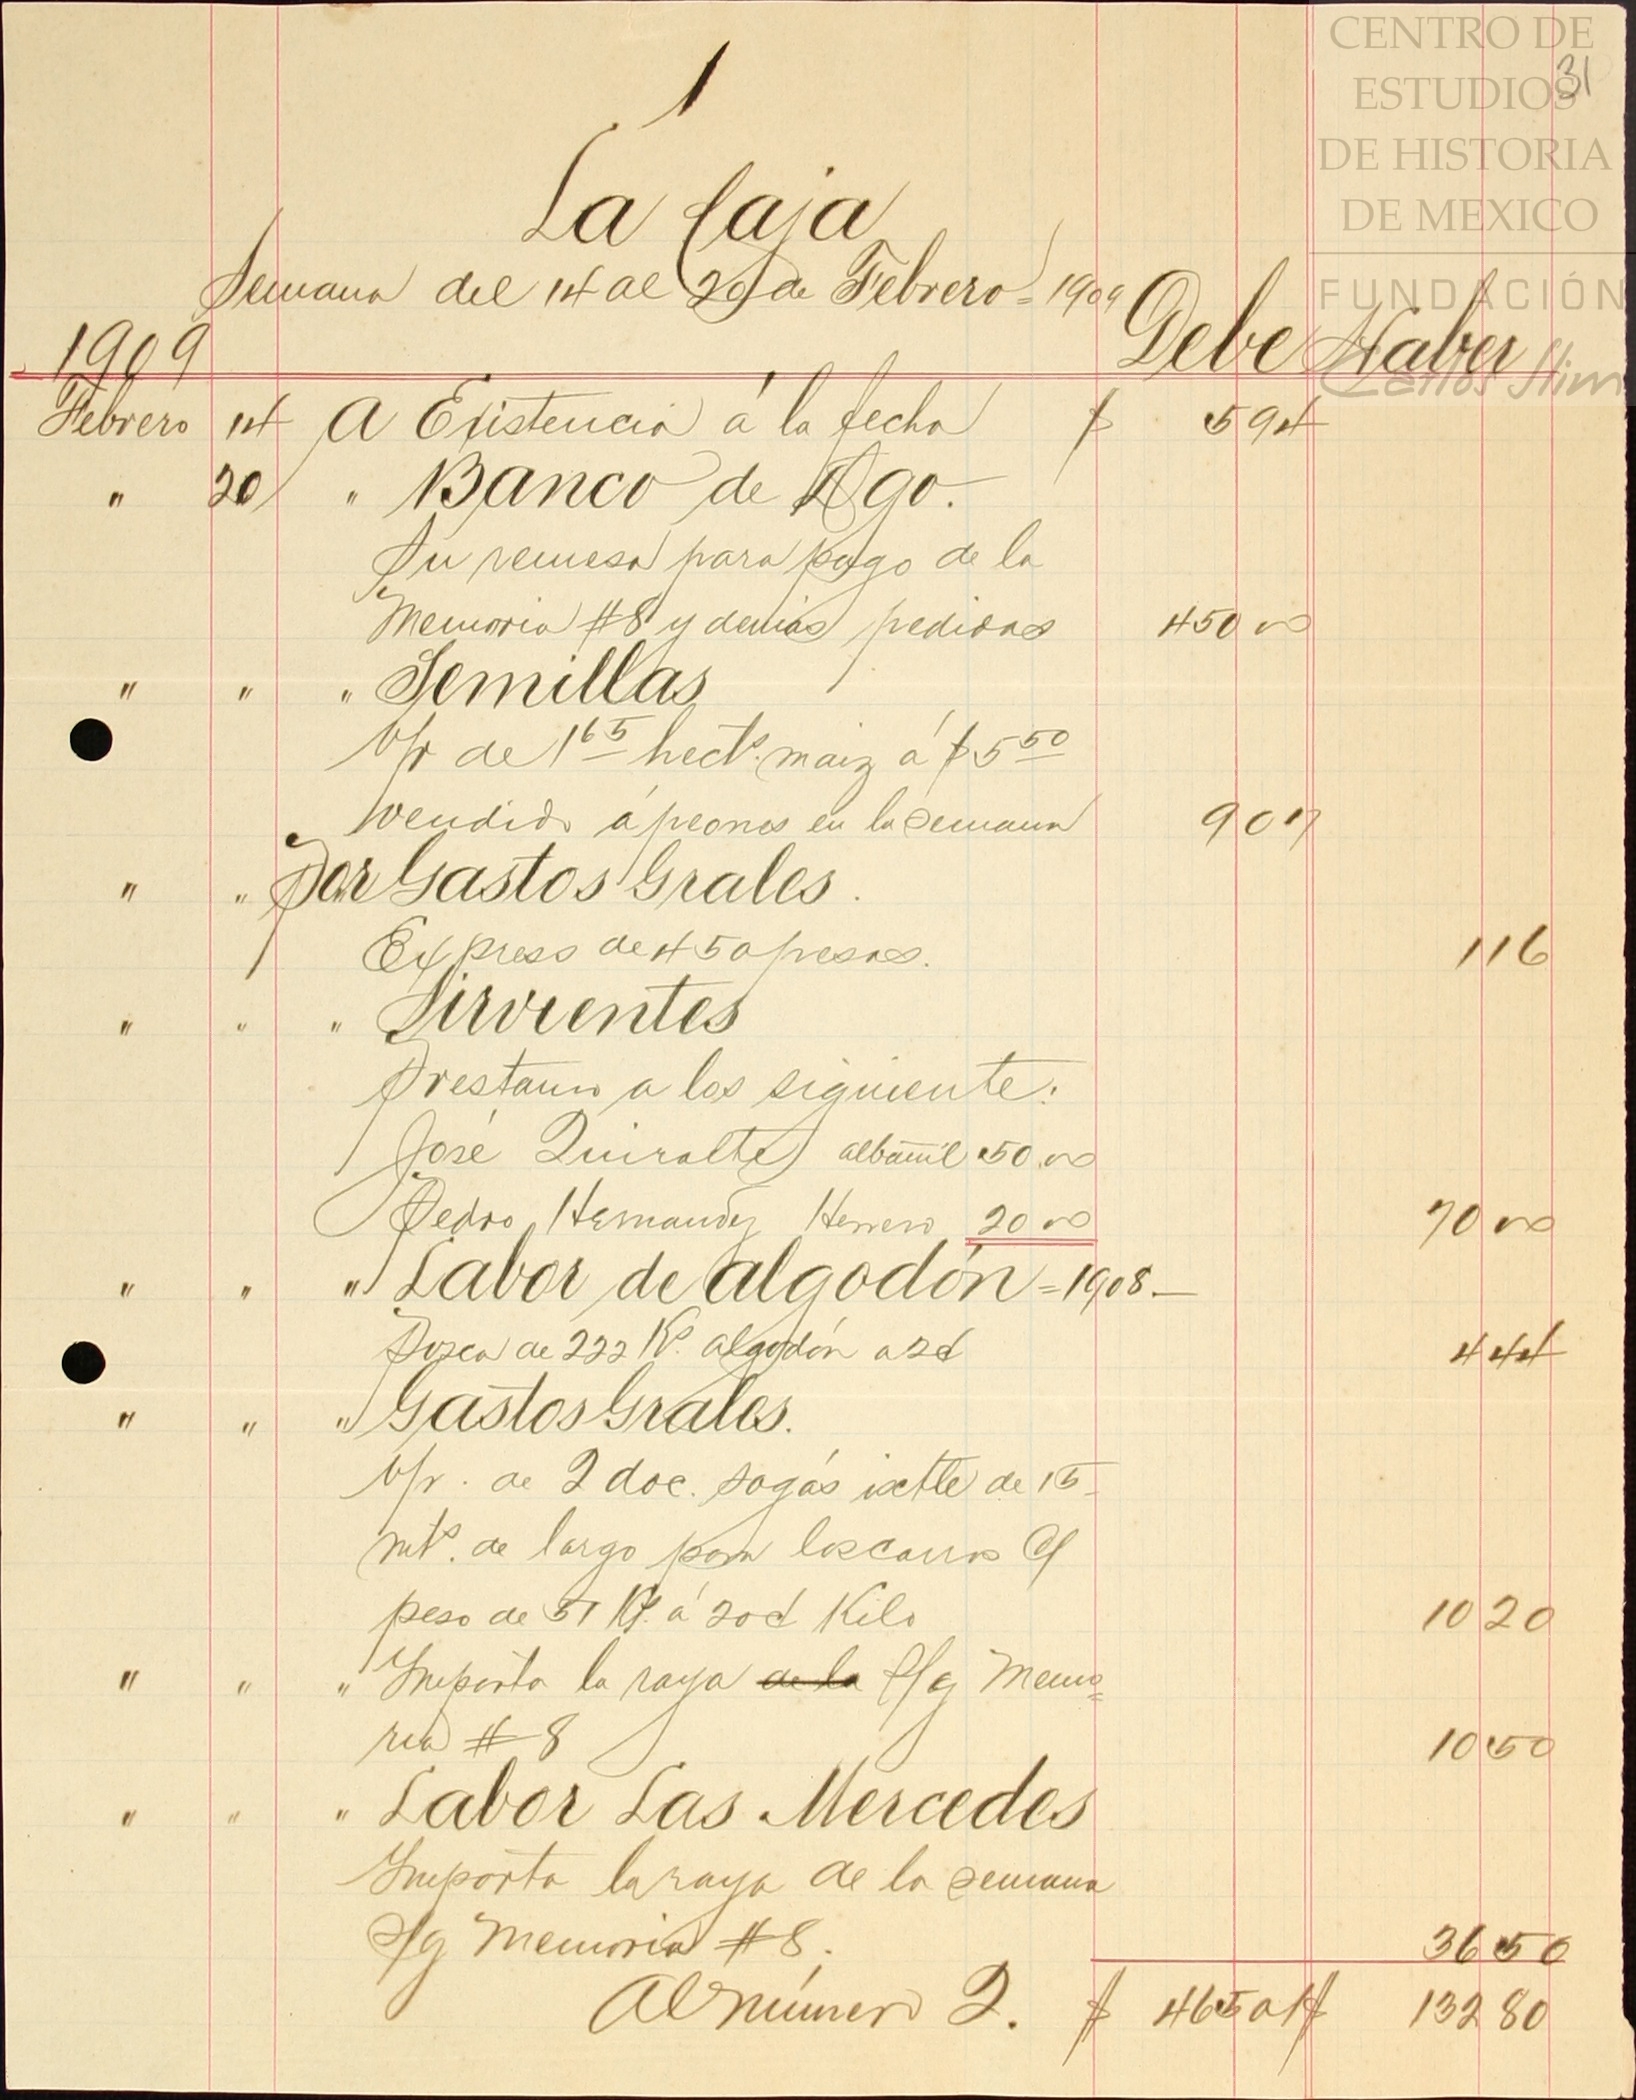 CENTRO DE
ESTUDIOS
DE HISTORIA
DE MEXICO
FUNDACIÓN
Carlos Slim
31
1
La Caja
Semana del 14 al 20 de Febrero = 1909
1909 Debe Haber
Febrero 14 A Existencia á la fecha $ 5 94
" 20 " Banco de Ago.
Su remesa para pago de la
Memoria #8 y demás pedidas 450 00
" " " Semillas
V/r de 1 65 hects. maiz á $ 5 50
vendido á peones en la semana 9 07
" " Por Gastos Grales.
Express de 450 pesos. 1 16
" " " Sirvientes
Prestamo a los siguiente:
José Quiralte albañil 50.00
Pedro Hernandez Herrero 20 00 70 00
" " " Labor de algodón = 1908.—
Pizca de 222 Ks. algodón a 2¢ 4 44
" " " Gastos Grales.
V/r. de 2 doc. sogás ixtle de 15
mts. de largo para los carros C/
peso de 51 Ks. á 20¢ Kilo 10 20
" " " Importa la raya de la S/g Memo=
ria #8 10 50
" " " Labor Las Mercedes
Importa la raya de la semana
S/g Memoria #8. 36 50
Al número 2. $ 465 01 $ 132 80